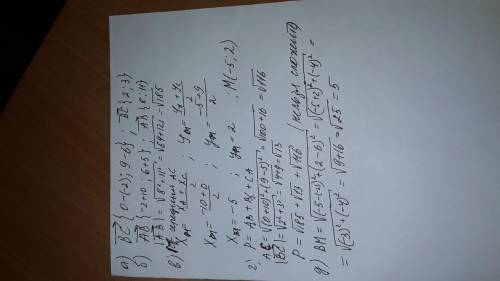 а) BC {0-(-2); 9-6} ; BC {2; 3}
б) AB {-2+10 ; 6+5} ; AB {8; 11}
|AB| = √8²+11² = √64+121 = √185
в) M середина AC
Xm = xa+xc/2 ; ym = ya+yc/2
Xm = -10+0/2 ; ym = -5+9/2
Xm = -5 ; ym = 2 ; M(-5; 2)
г) P = AB + BC + CA
AC = √(0+10)²+(9-5)² = √100+16 = √116
|BC| = √2²+3² = √4+9 = √13
P = √185 + √13 + √116 (нельзя сложить)
д) BM = √(-5-(-2))²+(2-6)² = √(-5+2)²+(-4)² =
= √(-3)²+(-4)² = √9+16 = √25 = 5